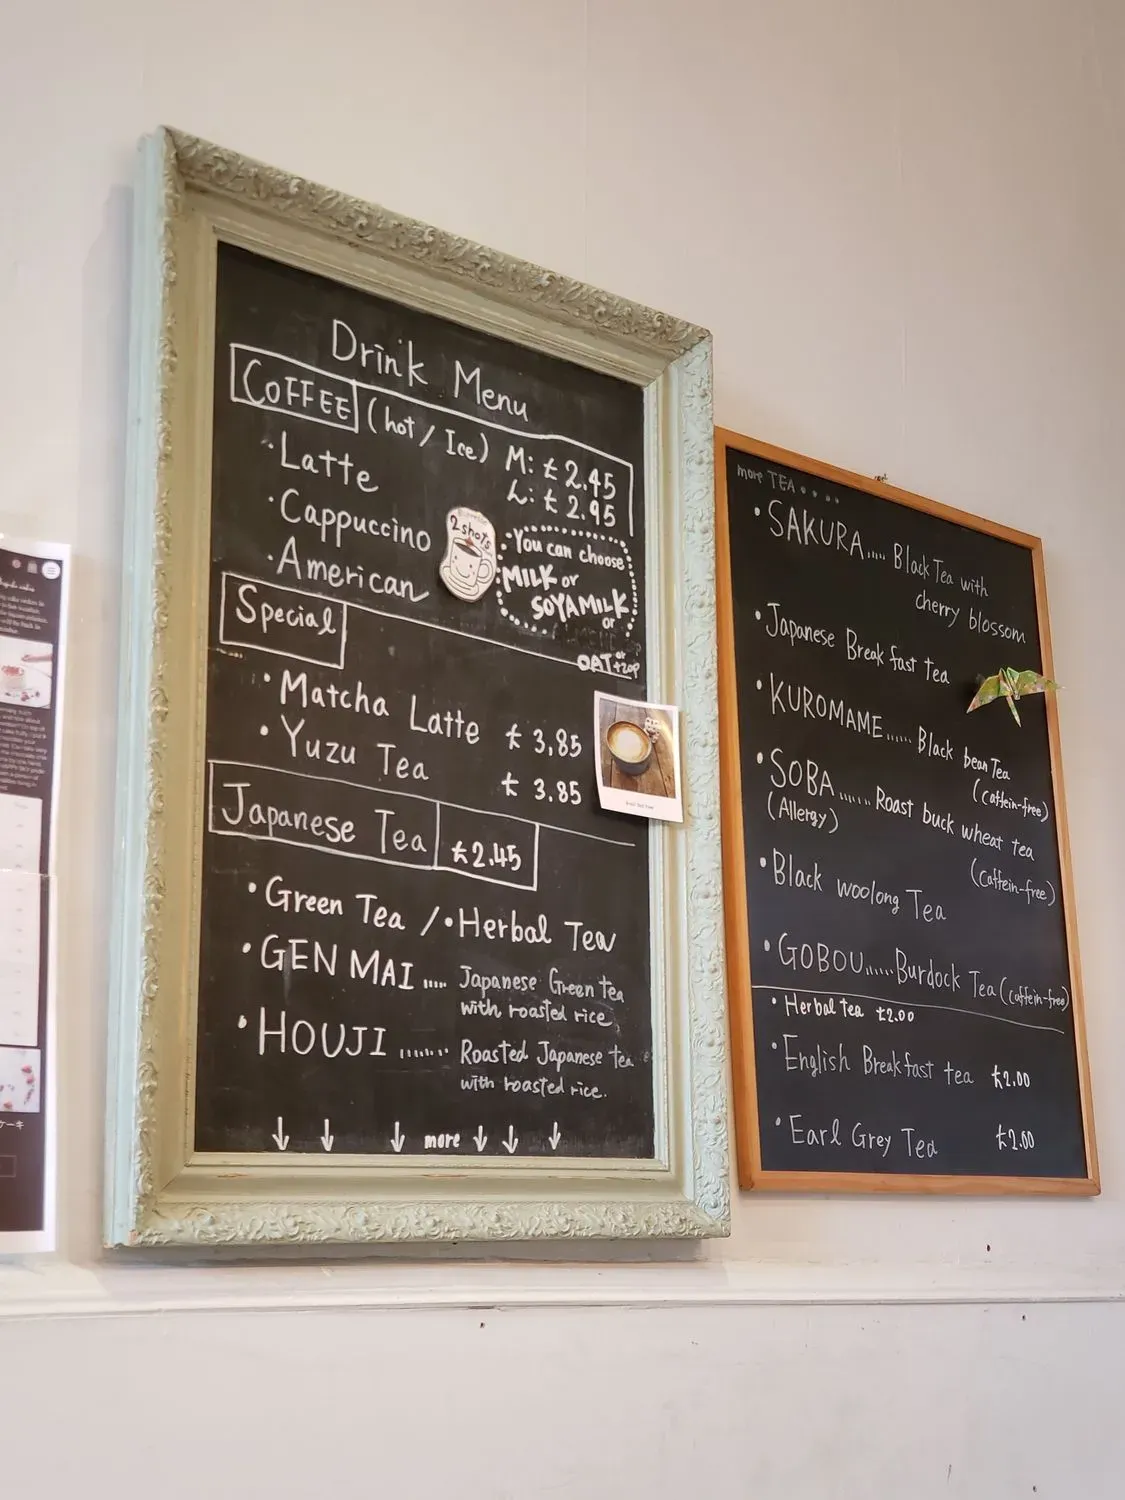 Drink Menu
COFFEE (hot / Ice) M: £2.45
L: £2.95
· Latte
· Cappuccino
· American
2 shots
· You can choose
MILK or
SOYAMILK
or
OAT +20p
Special
· Matcha Latte £3.85
· Yuzu Tea £3.85
Japanese Tea £2.45
· Green Tea / · Herbal Tea
· GEN MAI ..... Japanese Green tea
with roasted rice
· HOUJI ........ Roasted Japanese tea
with roasted rice.
↓ ↓ ↓ more ↓ ↓ ↓
more TEA ....
· SAKURA ..... Black Tea with
cherry blossom
· Japanese Breakfast tea
· KUROMAME ...... Black bean Tea
(caffein-free)
· SOBA ....... Roast buck wheat tea
(Allergy) (caffein-free)
· Black woolong Tea
· GOBOU ...... Burdock Tea (caffein-free)
· Herbal tea £2.00
· English Breakfast tea £2.00
· Earl Grey Tea £2.00